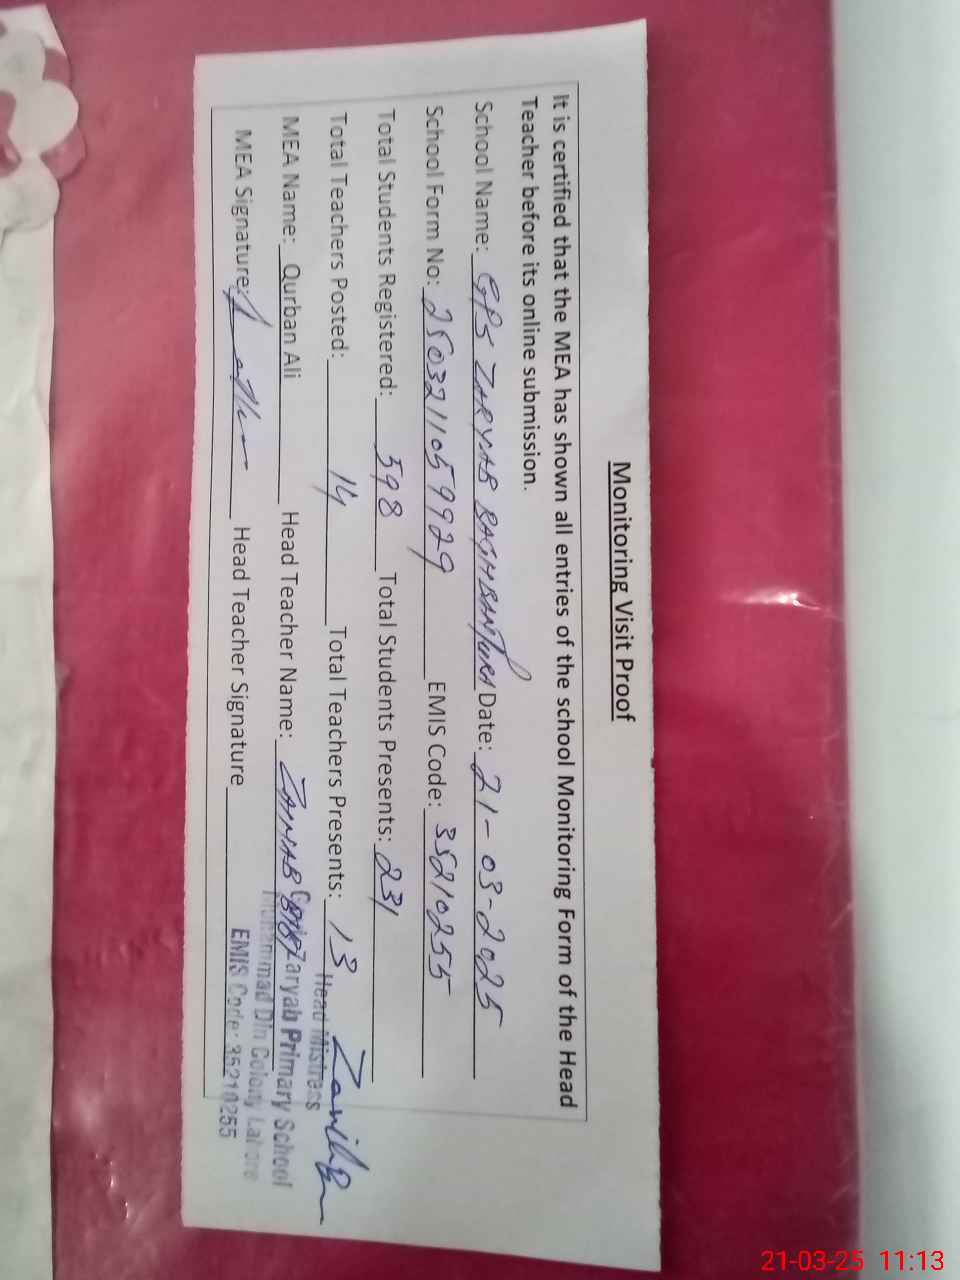 Monitoring Visit Proof
It is certified that the MEA has shown all entries of the school Monitoring Form of the Head
Teacher before its online submission.
School Name: GPS ZARYAB BAGHBANPURA Date: 21-03-2025
School Form No: 2503211059929 EMIS Code: 35210255
Total Students Registered: 598 Total Students Presents: 231
Total Teachers Posted: 14 Total Teachers Presents: 13
MEA Name: Qurban Ali Head Teacher Name:
MEA Signature: Head Teacher Signature
Head Mistress
Zaryab Primary School
Muhammad Din Colony Lahore
EMIS Code: 35210255
21-03-25 11:13